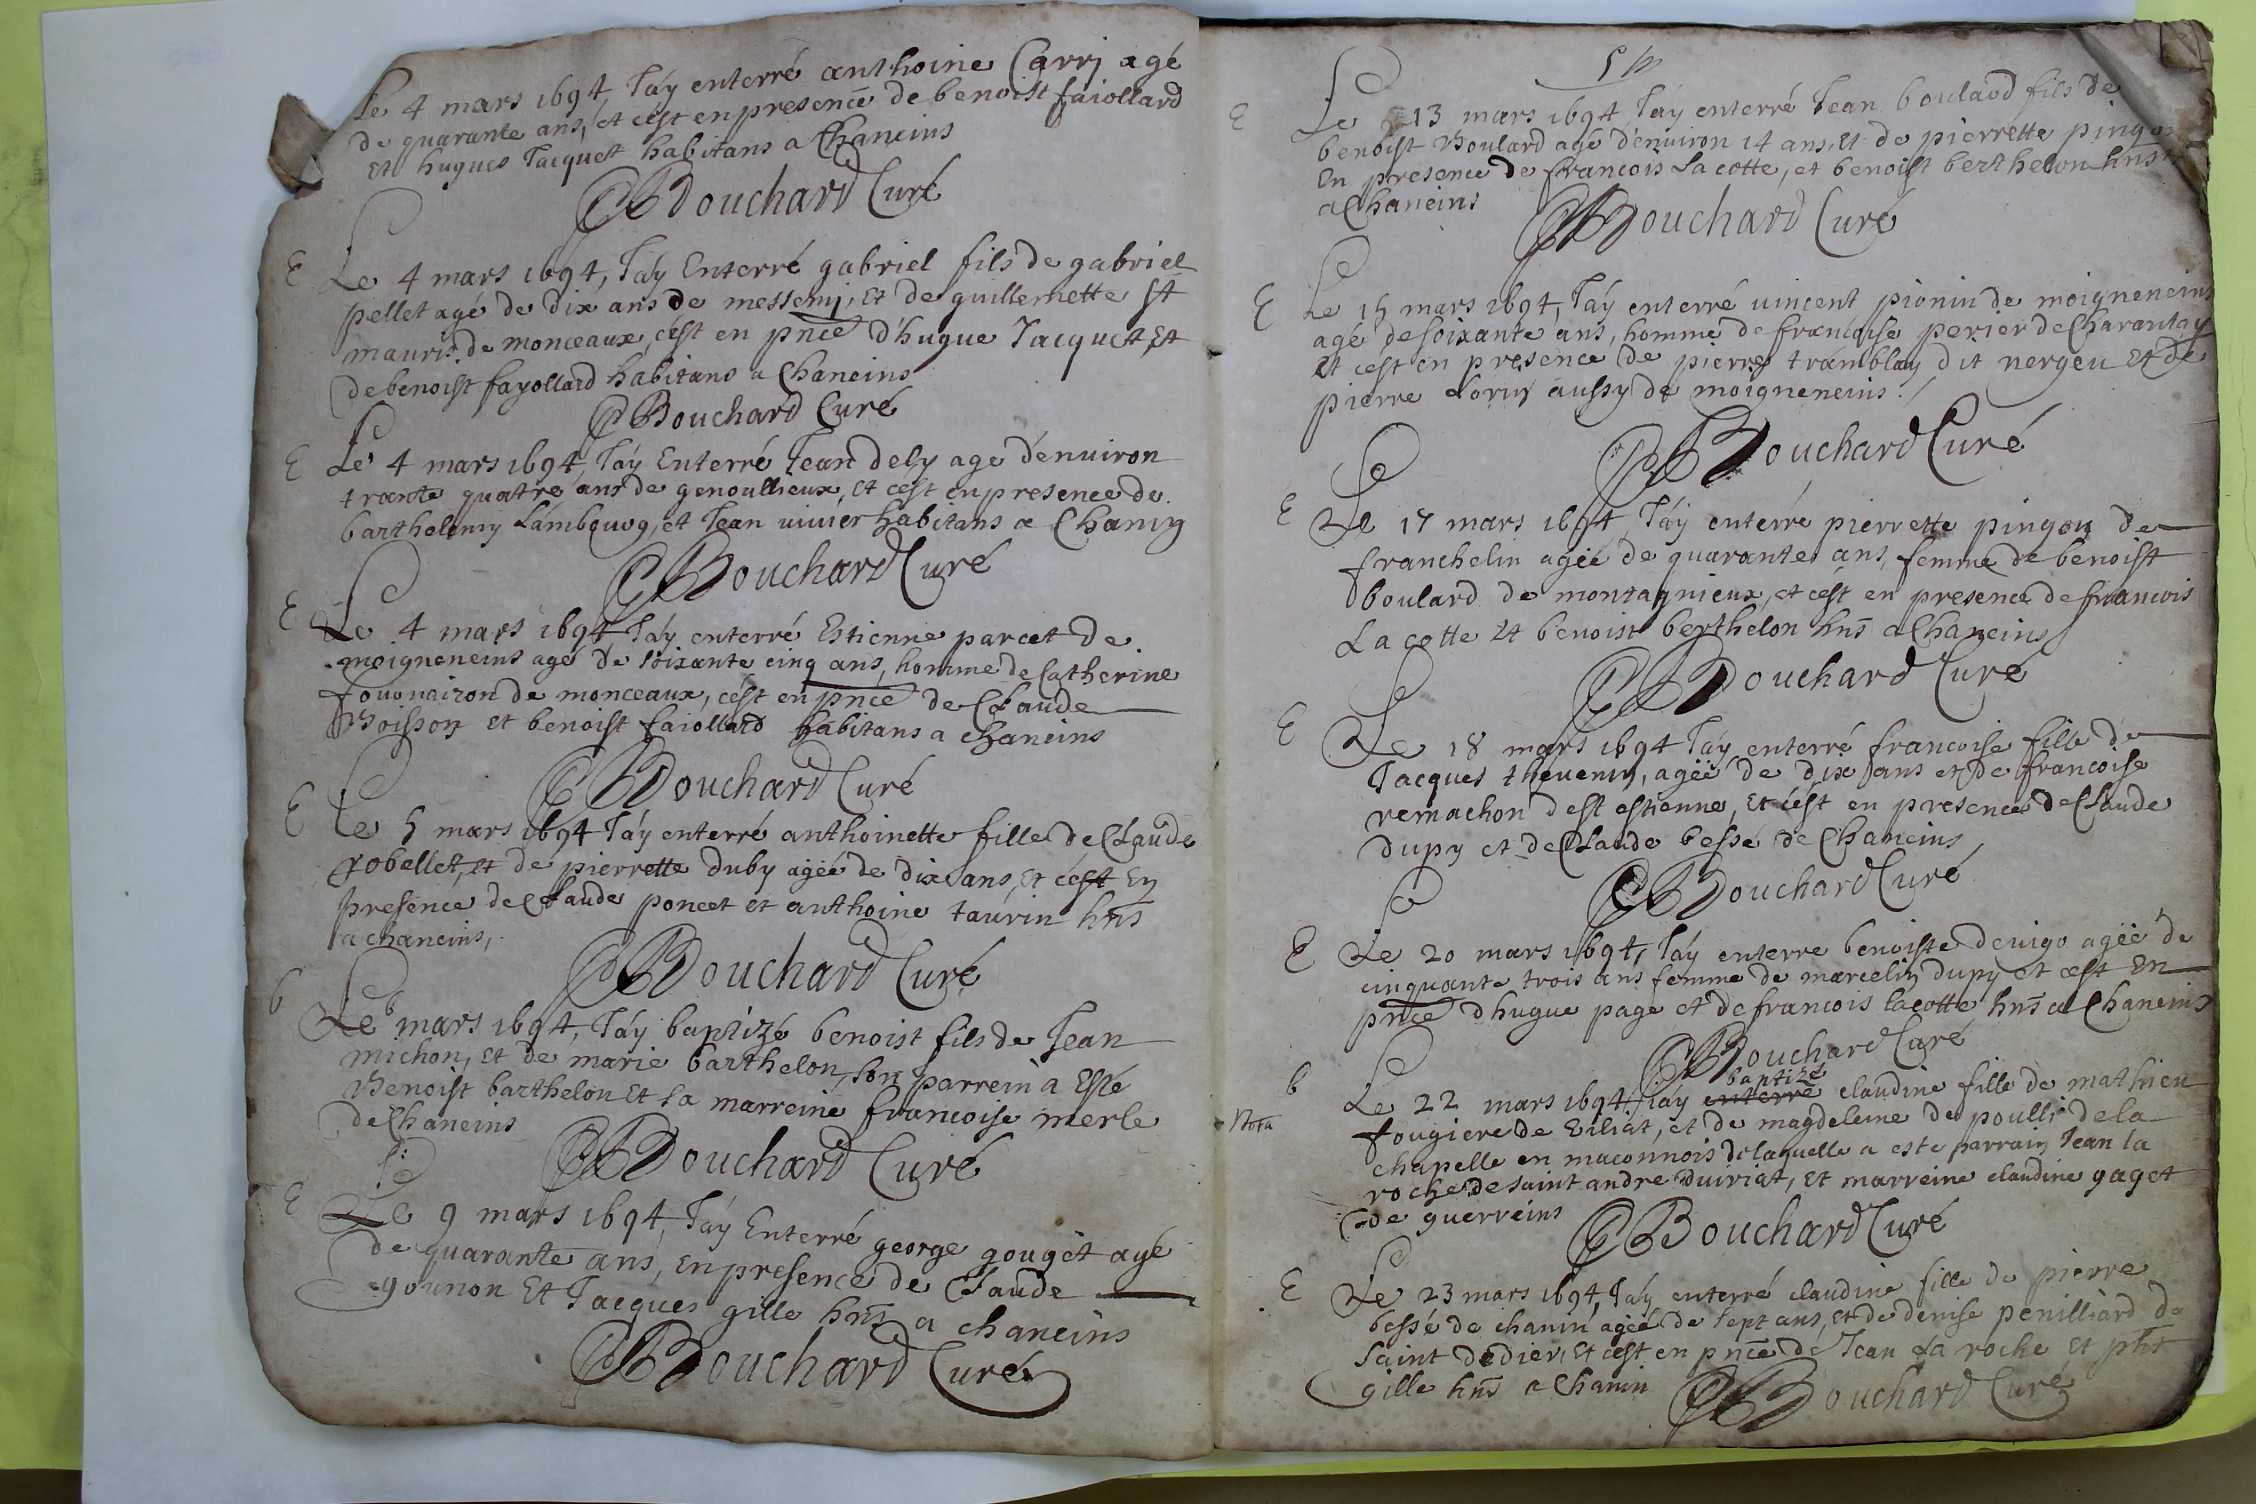 Le 4 mars 1694 J'ay enterré anthoine Carrj agé
de quarante ans, et c'est en presence de benoist faiollard
Et hugues Jacquet habitans a Chaneins
Bouchard Curé
E Le 4 mars 1694, J'ay Enterré gabriel fils de gabriel
pellet agé de dix ans de messemj, et de guillemette st
mauris de monceaux, c'est en pnce d'hugue Jacquet, Et
de benoist fayollard habitans a Chaneins
Bouchard Curé
E Le 4 mars 1694, J'ay Enterré Jean dely agé d'enuiron
trante quatre ans de genoullieux, et c'est en presence de
barthelemy et Jean uiuier habitans a Chaniy
Bouchard Curé
E Le 4 mars 1694 J'ay enterré Estienne parcet de
moigneneins agé de soixante cinq ans, homme de Catherine
de monceaux, c'est en pnce de Claude
Boisson et benoist faiollard habitans a chaneins
Bouchard Curé
E Le 5 mars 1694 J'ay enterré anthoinette fille de Claude
robellet, et de pierrette duby agéé de dix ans, et c'est En
presence de Claude poncet et anthoine taurin hns
a chaneins,
Bouchard Curé
b Le 6 mars 1694, J'ay baptizé benoist fils de Jean
michon, et de marie barthelon, son parrein a Esté
Benoist barthelon Et sa marreine francoise merle
de Chaneins
Bouchard Curé
E Le 9 mars 1694, J'ay Enterré george gouget agé
de quarante ans, en presence de Claude
gounon Et Jacques gille hns a chaneins
Bouchard Curé
E Le 13 mars 1694, J'ay enterré Jean boulard fils de
benoist Boulard agé d'enuiron 14 ans, et de pierrette
En presence de francois La cotte, et benoist berthelon hns
a Chaneins
Bouchard Curé
E Le 15 mars 1694, J'ay enterré uincent pionin de moigneneins
agé de soixante ans, homme de francoise perier de Charantay
et c'est en presence de pierre tramblay dit nergeu et de
pierre Loruy aussy de moigneneins.
Bouchard Curé
E Le 17 mars 1694, J'ay enterré pierrette pingon de
franchelin agéé de quarante ans, femme de benoist
boulard de montagnieux, et c'est en presence de francois
La cotte et benoist berthelon hns a Chaneins
Bouchard Curé
E Le 18 mars 1694 J'ay enterré francoise fille de
Jacques theuenin, agéé de dix ans et de francoise
remachon dest estienne, Et c'est en presence de Claude
dupy et de Claude bessé de Chaneins
Bouchard Curé
E Le 20 mars 1694, J'ay enterre benoiste deuigo agéé de
cinquante trois ans femme de marcelin dupy et c'est En
pnce d'hugue page et de francois lacotte hns a Chaneins
Bouchard Curé
baptizé
b Le 22 mars 1694, j'ay enterré claudine fille de mathieu
Nota fougiere de Ziliat, et de magdeleine de poulli de la
chapelle en maconnois de laquelle a esté parrain Jean la
roche de saint andre duiriat, et marreine claudine gaget
de guerreins
Bouchard Curé
E Le 23 mars 1694, J'ay enterré claudine fille de pierre
bessé de chanin agéé de sept ans, et de denise penilliard de
saint dedier, et c'est en pnce de Jean La roche et pht
gille hns a Chanin
Bouchard Curé